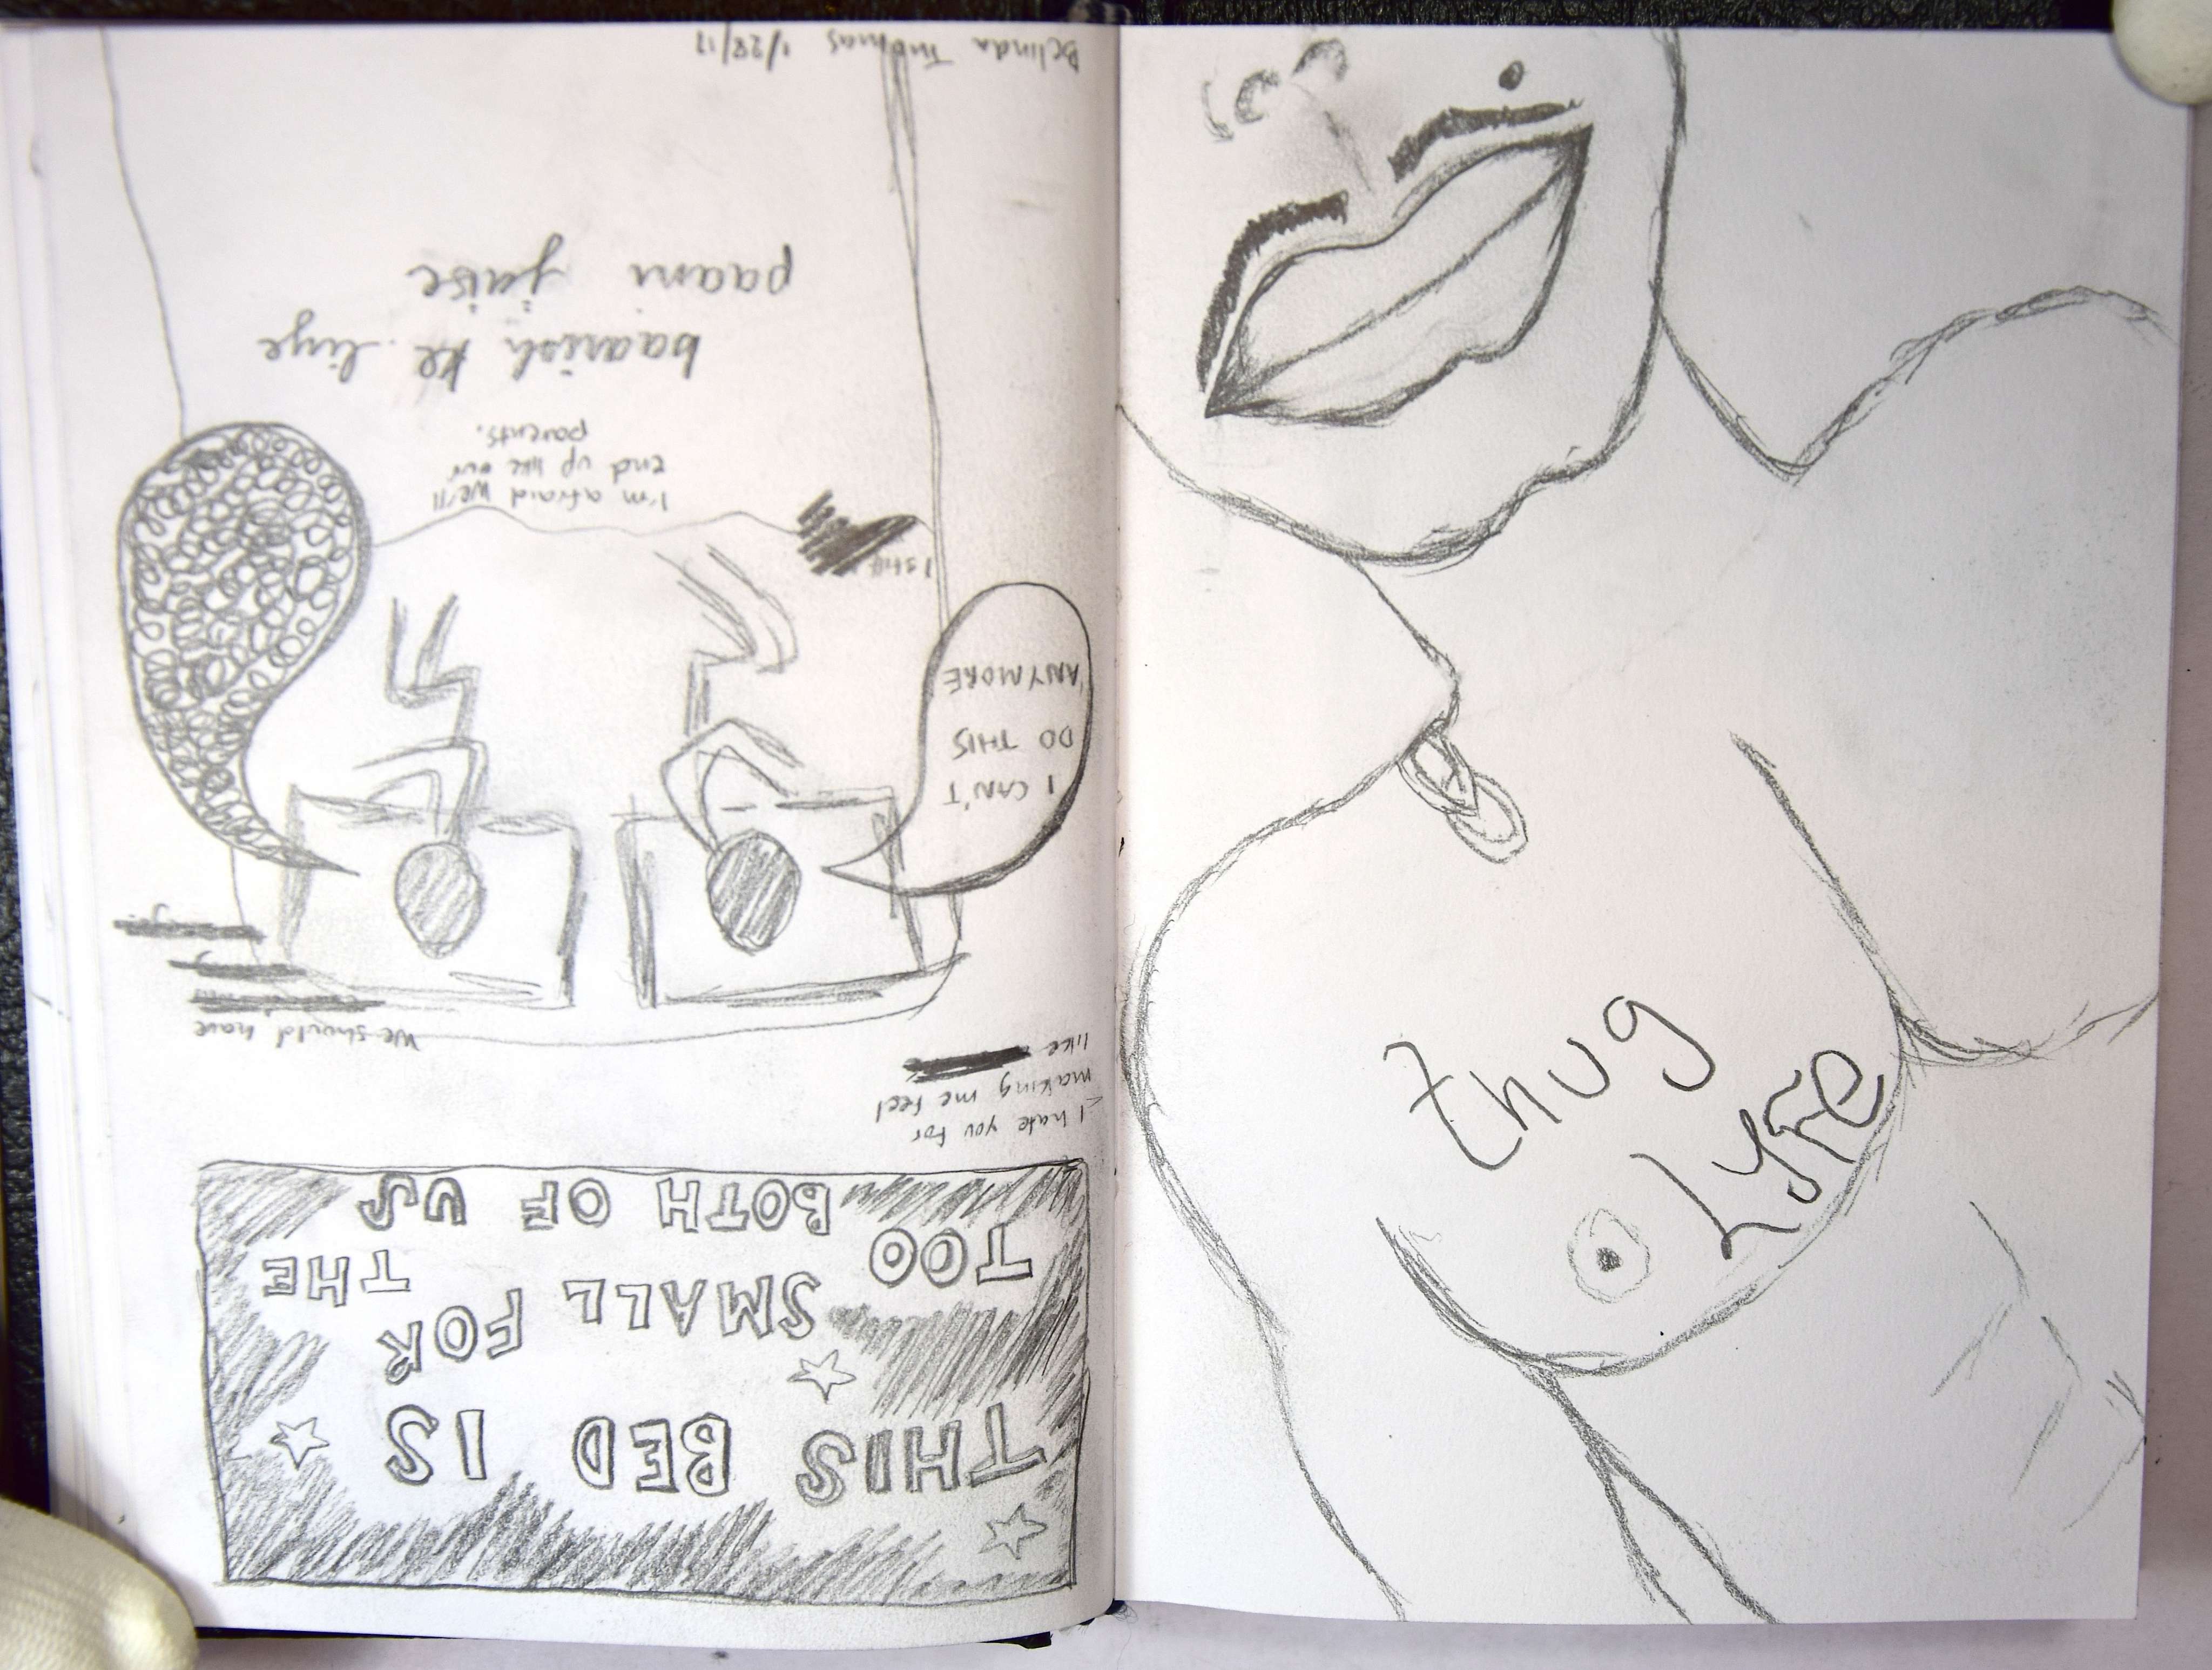 THIS BED IS
TOO SMALL FOR THE
BOTH OF US
I hate you for
making me feel
like
We should have
I CAN'T
DO THIS
ANYMORE
I still
I'm afraid we'll
end up like our
parents.
baarish ke liye
paani jaise
Belinda Thomas 1/28/17
thug
Lyfe